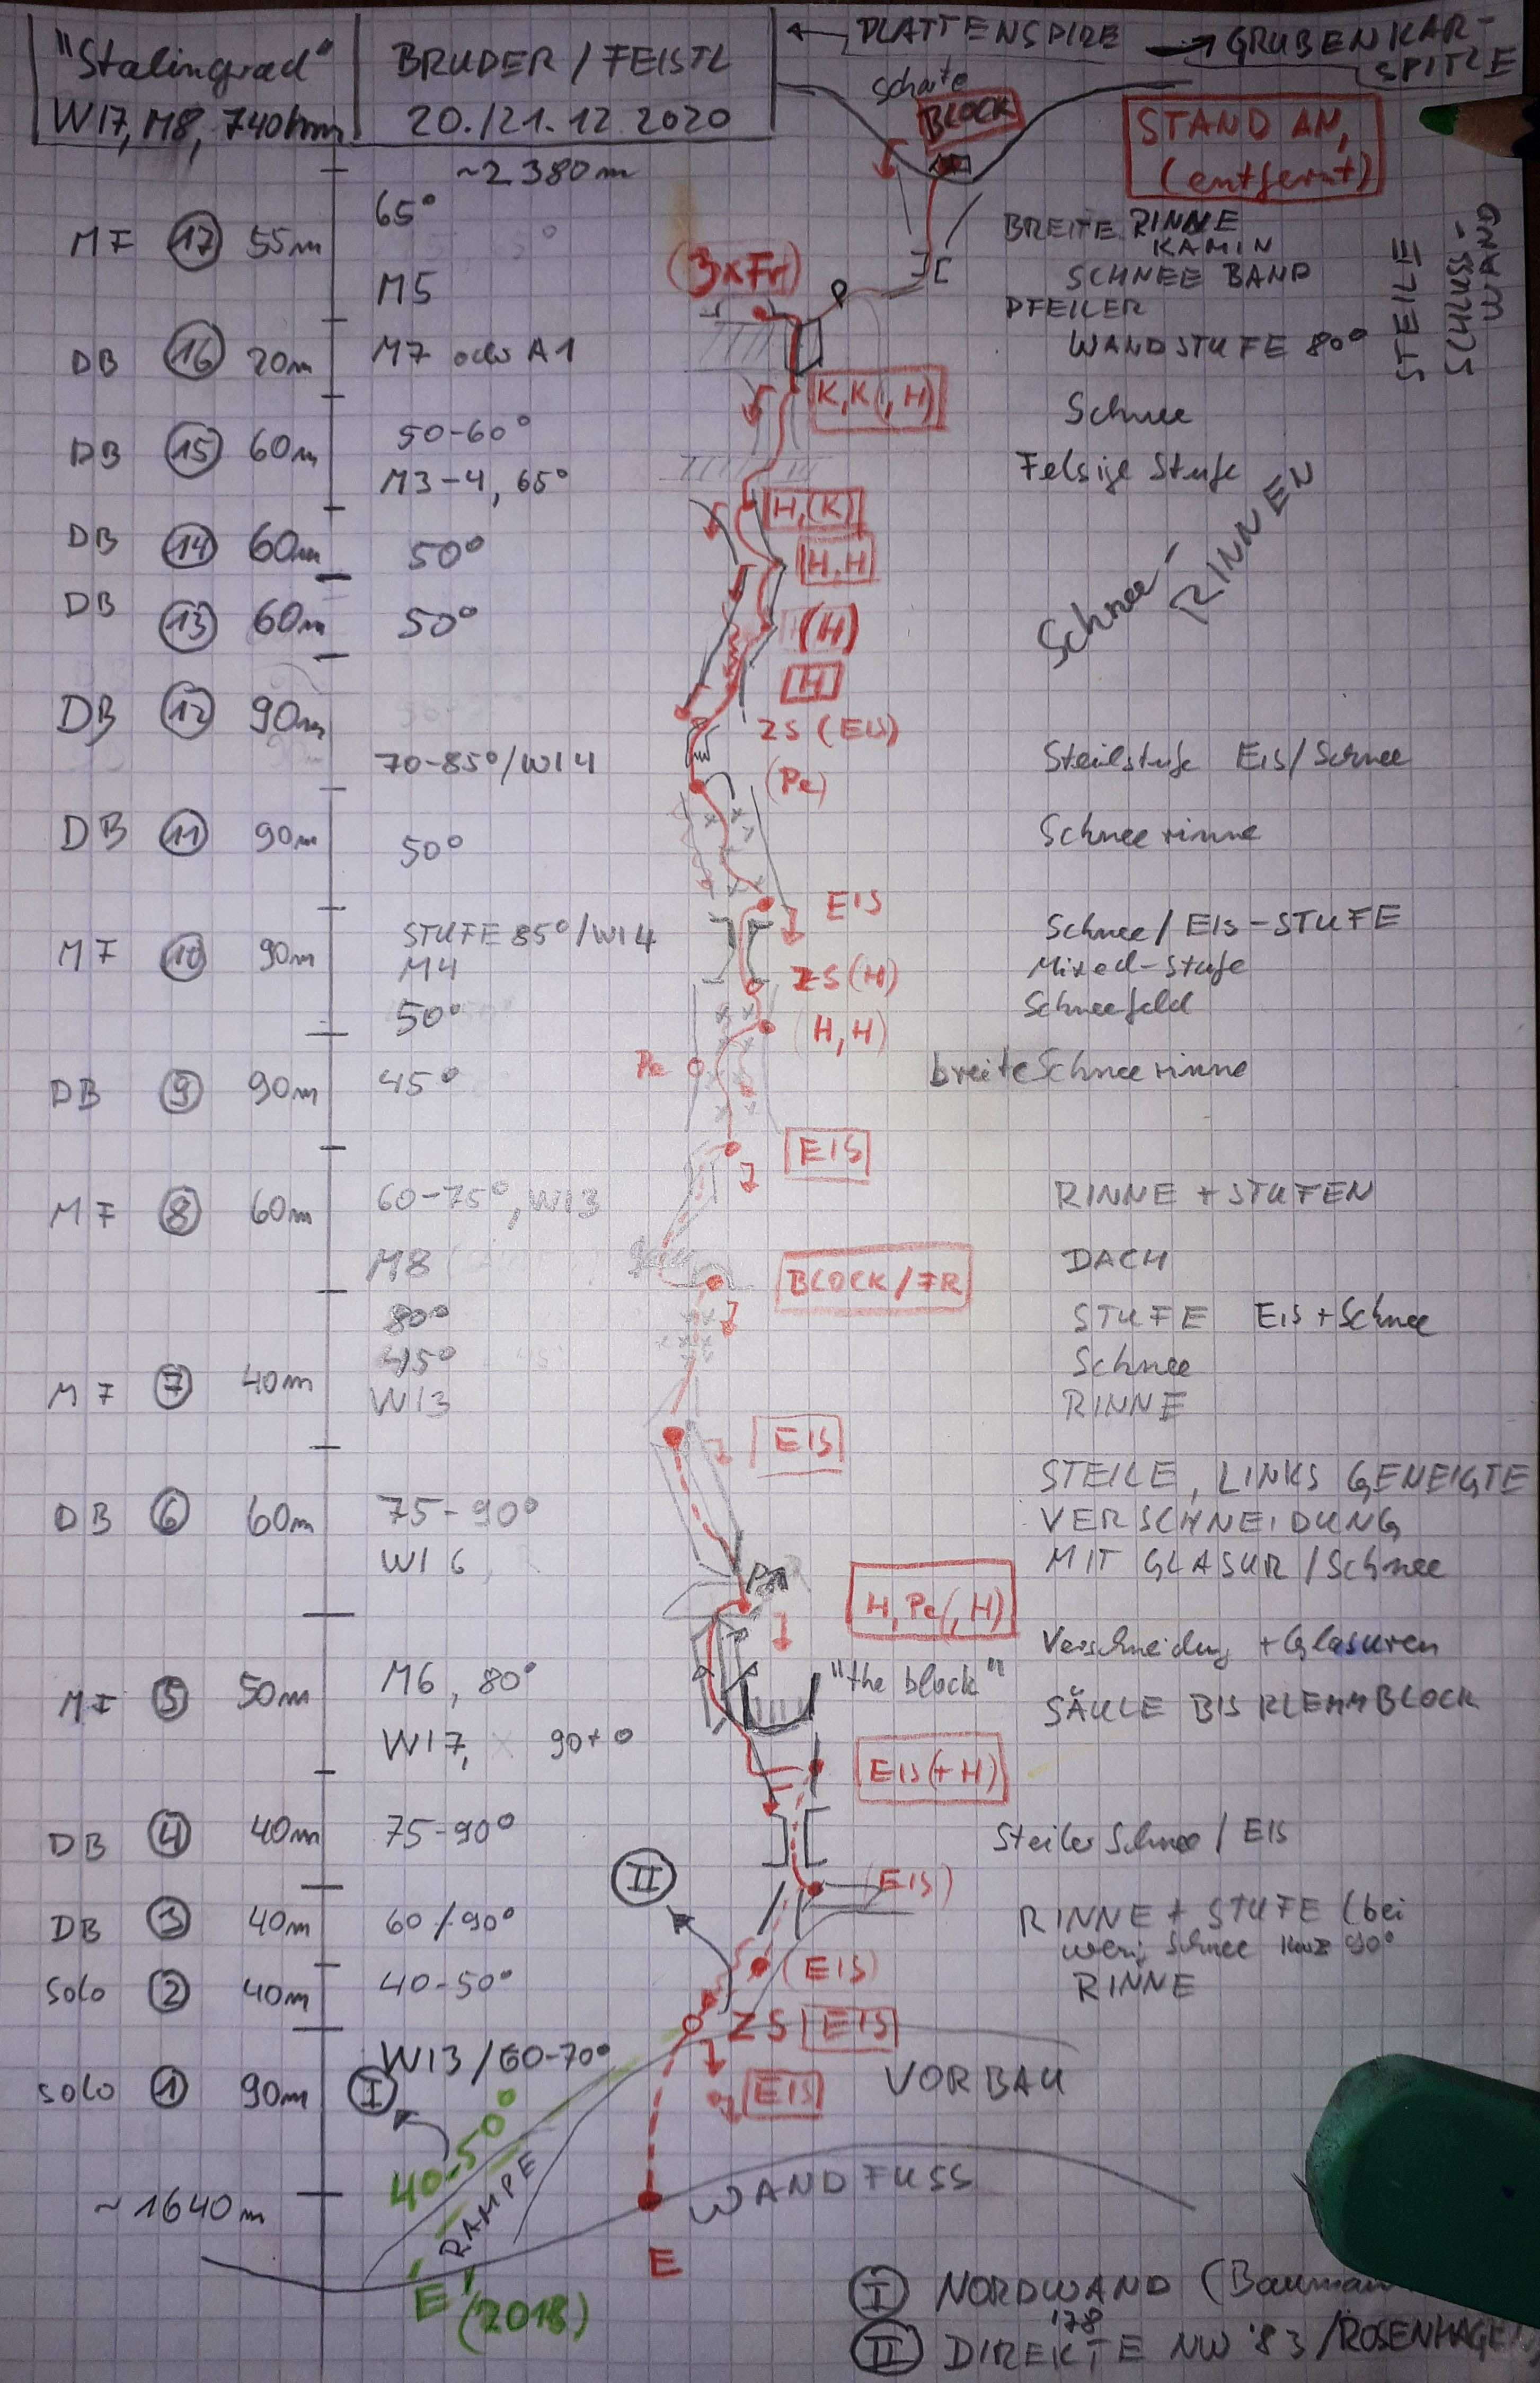 "Stalingrad"
WI7, M8, 740hm
BRUDER / FEISTL
20./21.12.2020
← PLATTENSPIRE
→ GRUBENKAR-
SPITZE
BLOCK
STAND AN,
(entfernt)
~2380m
MF 17 55m
65°
M5
(3xFr)
BREITE RINNE
KAMIN
SCHNEE BAND
PFEILER
STEILE
SCHLUSS-
WAND
DB 16 20m
M7 oder A1
WANDSTUFE 80°
K,K(,H)
DB 15 60m
50-60°
M3-4, 65°
Schnee
Felsige Stufe
H,(K)
DB 14 60m
50°
H,H
DB 13 60m
50°
(H)
Schnee-
RINNEN
H
DB 12 90m
70-85°/WI4
ZS (EIS)
Steilstufe EIS/Schnee
(Pe)
DB 11 90m
50°
Schneerinne
EIS
MF 10 90m
STUFE 85°/WI4
M4
50°
ZS (H)
(H,H)
Schnee/EIS-STUFE
Mixed-Stufe
Schneefeld
DB 9 90m
45°
Pe
breite Schneerinne
EIS
MF 8 60m
60-75°, WI3
M8
RINNE + STUFEN
DACH
BLOCK/FR
MF 7 40m
80°
45°
WI3
STUFE EIS+Schnee
Schnee
RINNE
EIS
DB 6 60m
75-90°
WI6
STEILE, LINKS GENEIGTE
VERSCHNEIDUNG
MIT GLASUR/Schnee
H,Pe(,H)
MF 5 50m
M6, 80°
WI7, 90+°
"the block"
Verschneidung + Glasuren
SÄULE BIS KLEMMBLOCK
EIS(+H)
DB 4 40m
75-90°
Steiler Schnee/EIS
II
(EIS)
DB 3 40m
60/90°
RINNE + STUFE (bei
wenig Schnee kurz 90°
(EIS)
SOLO 2 40m
40-50°
RINNE
ZS EIS
SOLO 1 90m
WI3/60-70°
I
EIS
VORBAU
40-50°
RAMPE
~1640m
WANDFUSS
E
E (2018)
I NORDWAND (Bauman
'78
II DIREKTE NW '83/ROSENHAGE